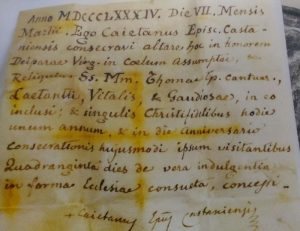 Anno MDCCCLXXXIV. Die VII. Mensis
Martii. Ego Caietanus Episc. Casta-
niensis consecravi altare hoc in honorem
Deiparae Virg. in Coelum Assumptae, &
Reliquias Ss. Mm. Thomae Ep. Cantuar.,
Laetantii, Vitalis, & Gaudiosae, in eo
inclusi; & singulis Christifidelibus hodie
unum annum, & in die anniversario
consecrationis hujusmodi ipsum visitantibus
Quadraginta dies de vera indulgentia
in forma Ecclesiae consueta, concessi.
+ Caietanus